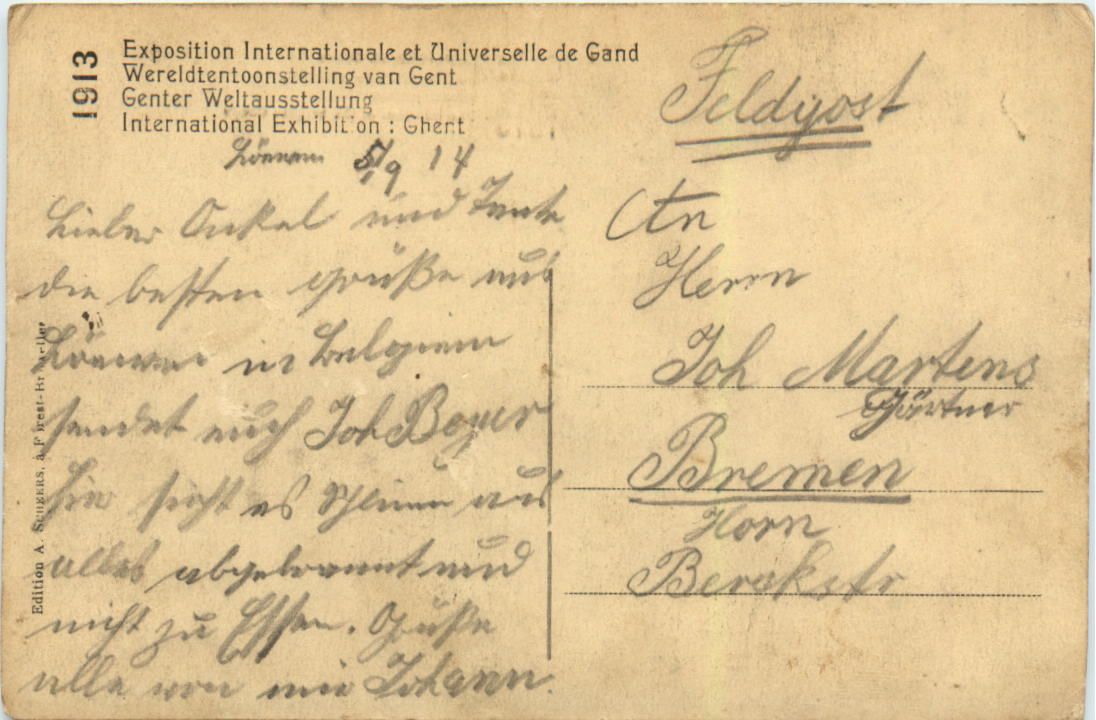 1913
Exposition Internationale et Universelle de Gand
Wereldtentoonstelling van Gent
Genter Weltausstellung
International Exhibition : Ghent
Löwen 5/9 14
Lieber Onkel und Tante
die besten Grüße aus
Löwen in Belgien
sendet euch Joh Boyer
hir sieht es schlimm aus
alles abgebrannt und
nicht zu Essen. Grüße
alle von mir Johann.
Feldpost
An
Herrn
Joh Martens
Gärtner
Bremen
Horn
Berckstr
Edition A. SCHEERS, à Forest-Bruxelles